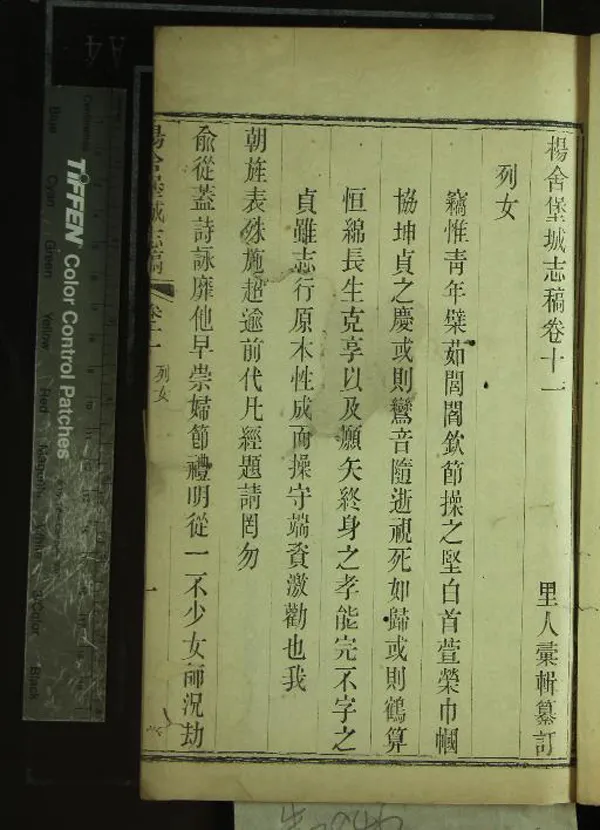 楊舍堡城志稿卷十一
里人彙輯纂訂
列女
竊惟青年檗茹閨閤欽節操之堅白首萱榮巾幗
協坤貞之慶或則鸞音隨逝視死如歸或則鶴算
恒綿長生克享以及願矢終身之孝能完不字之
貞雖志行原本性成而操守端資激勸也我
朝旌表殊施超逾前代凡經題請罔勿
俞從蓋詩詠靡他早崇婦節禮明從一不少女師況劫
楊舍堡城志稿
卷十一
列女
一
TIFFEN Color Control Patches
Blue
Cyan
Green
Yellow
Red
Magenta
Black
A4